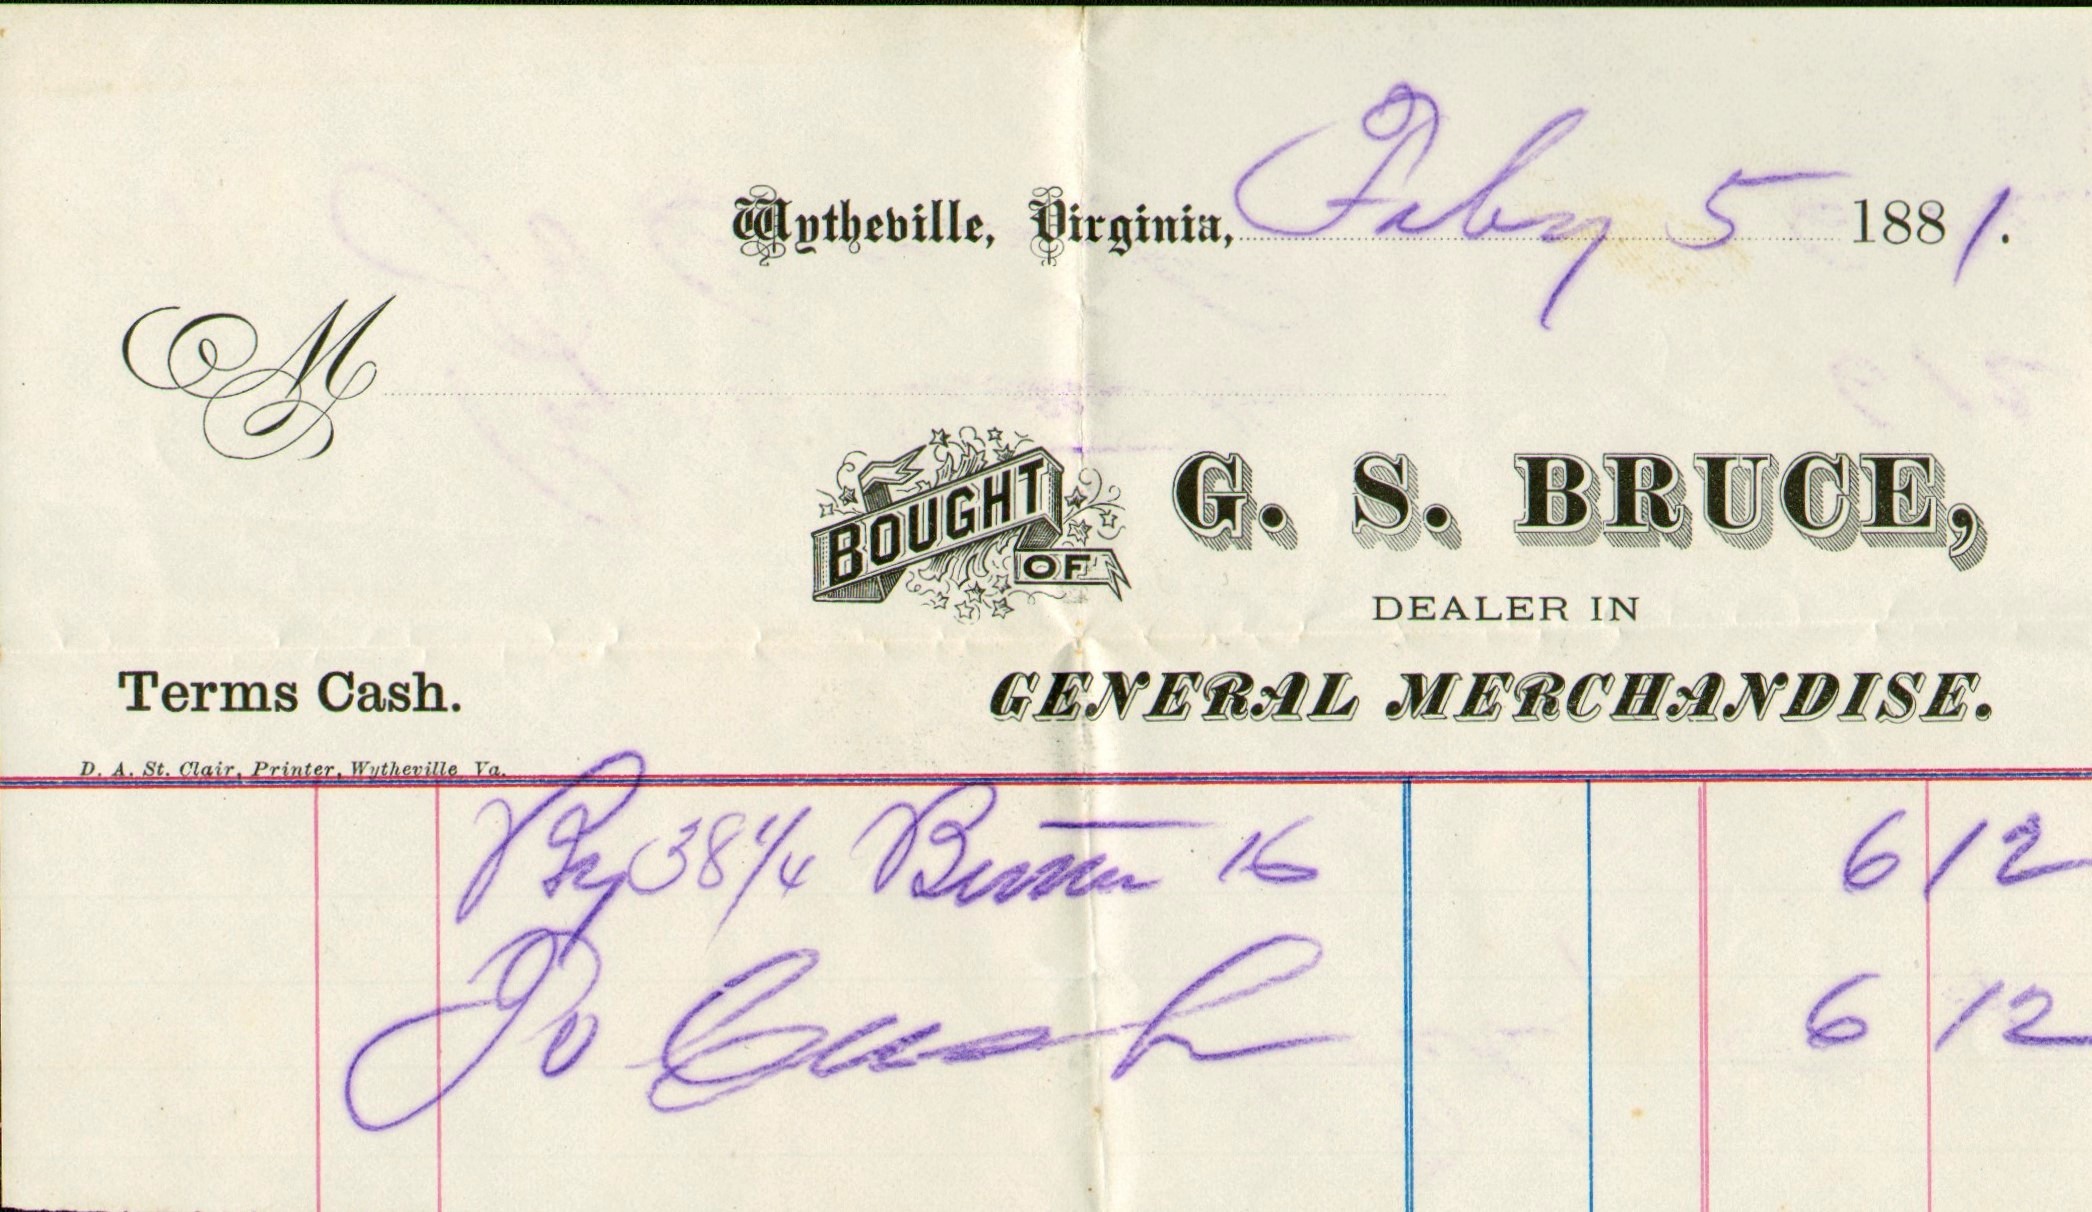 Wytheville, Virginia, Feby 5 1881.
M
BOUGHT OF G. S. BRUCE,
DEALER IN
Terms Cash. GENERAL MERCHANDISE.
D. A. St. Clair, Printer, Wytheville Va.
By 38 1/4 Butter 16 6 12
To Cash 6 12